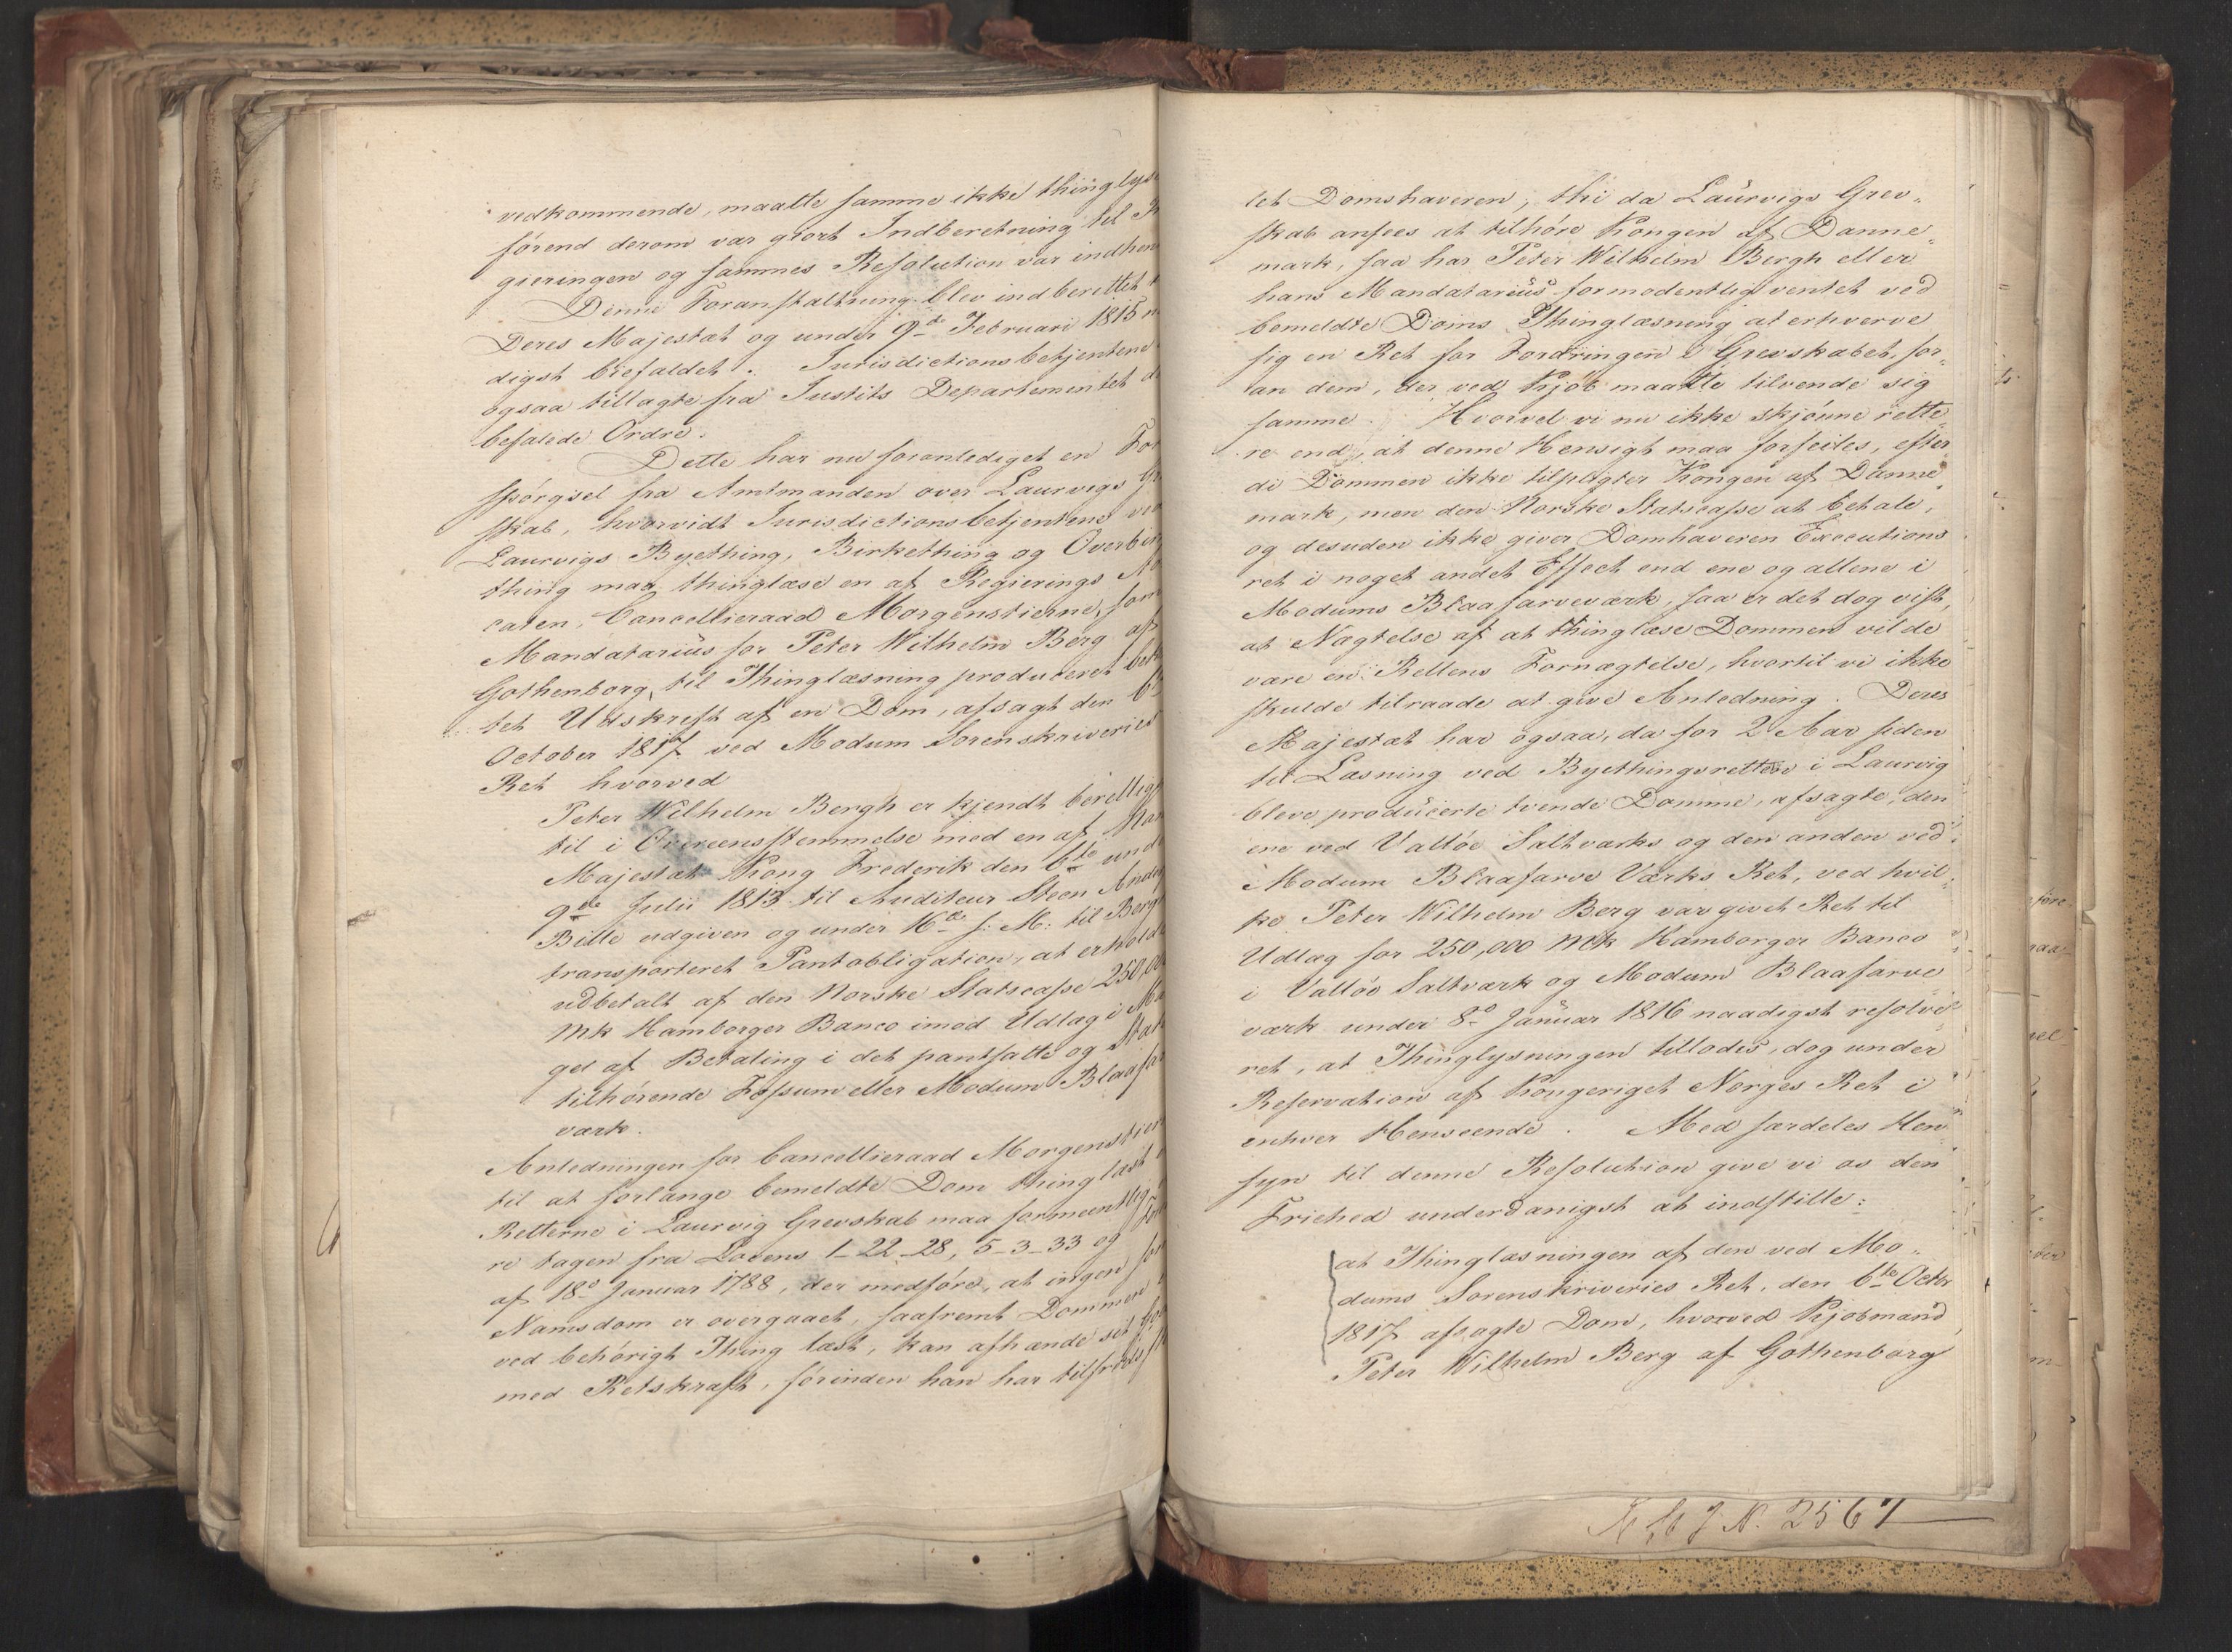 vedkommende, maatte samme ikke thinglys
förend derom var giort Indberetning til
gieringen og sammes Resolution var indhen
Denne Foranstaltning blev indberettet
Deres Majestæt og under 9de Februari 1815 n
digst bifaldet. Jurisdictionsbetjentene
ogsaa tillagte fra Justits Departementet d
befalede Ordre.
Dette har nu foranlediget en For
spörgsel fra Amtmanden over Laurvigs Gr
skab, hvorvidt Jurisdictionsbetjentene ved
Laurvigs Byething, Birkething og Overbir
thing maa thinglæse en af Regierings Av
caten, Cancellieraad Morgenstierne, som
Mandatarius for Peter Wilhelm Berg af
Gothenborg, til Thinglæsning produceret bek
tet Udskrift af en Dom, afsagt den 6te
October 1817 ved Modum Sorenskriveries
Ret hvorved
Peter Wilhelm Bergh er kjendt beretliget
til i Overeensstemmelse med en af Hans
Majestæt Kong Frederik den 6te und
9de Julii 1813 til Auditeur Steen Ander
Bille udgiven og under 16de s: M: til Bergh
transporteret Pantobligation, at erholde
udbetalt af den Norske Statscasse 250,000
Mk Hamborger Banco imod Udlag i Ma
gel af Betaling i det pantsatte og Stat
tilhörende Fossum eller Modum Blaafar
værk.
Anledningen for Cancellieraad Morgenstier
til at forlange bemeldte Dom thinglæst
Retterne i Laurvig Grevskab maa formeentlig
re tagen fra Lovens 1-22-28, 5-3-33 og For
af 18de Januar 1788, der medföre, at ingen for
Namsdom er overgaaet, saafremt Dommen
ved behörigt Thing læst, kan afhænde sit
med Retskraft, förinden han har tilfreds
let Domshaveren; thi da Laurvigs Grev„
skab ansees at tilhöre Kongen af Danne„
mark, saa har Peter Wilhelm Bergh eller
hans Mandatarius formodentlig ventet ved
bemeldte Doms Thinglæsning at erhverve
sig en Ret for Fordringen i Grevskabet, for„
an dem, der ved Kjöb maatte tilvende sig
samme. Hvorvel vi nu ikke skjönne rette„
re end, at denne Hensigt maa forfeiles, efter„
di Dommen ikke tilpligter Kongen af Danne„
mark, men den Norske Statscasse at betale,
og desuden ikke giver Domhaveren Executions
ret i noget andet Effect end ene og allene i
Modums Blaafarveværk, saa er det dog vist,
at Nægtelse af at thinglæse Dommen vilde
være en Rettens Fornægtelse, hvortil vi ikke
skulde tilraade at give Anledning. Deres
Majestæt har ogsaa, da for 2 Aar siden
til Læsning ved Byethingsretten i Laurvig
bleve producerte tvende Domme, afsagte, den
ene ved Vallöe Saltværks og den anden ved
Modum Blaafarve Værks Ret, ved hvil„
ke Peter Wilhelm Berg var givet Ret til
Udlag for 250,000 Mk Hamborger Banco
i Vallöe Saltværk og Modum Blaafarve
værk under 8de Januar 1816 naadigst resolve„
ret, at Thinglysningen tillodes, dog under
Reservation af Kongeriget Norges Ret i
enhver Henseende. Med særdeles Hen„
syn til denne Resolution give vi os den
Friehed underdanigst at indstille:
at Thinglæsningen af den ved Mo„
dums Sorenskriveries Ret, den 6te Octbr
1817 afsagte Dom, hvorved Kjöbmand
Peter Wilhelm Berg af Gothenborg
J N. 2567